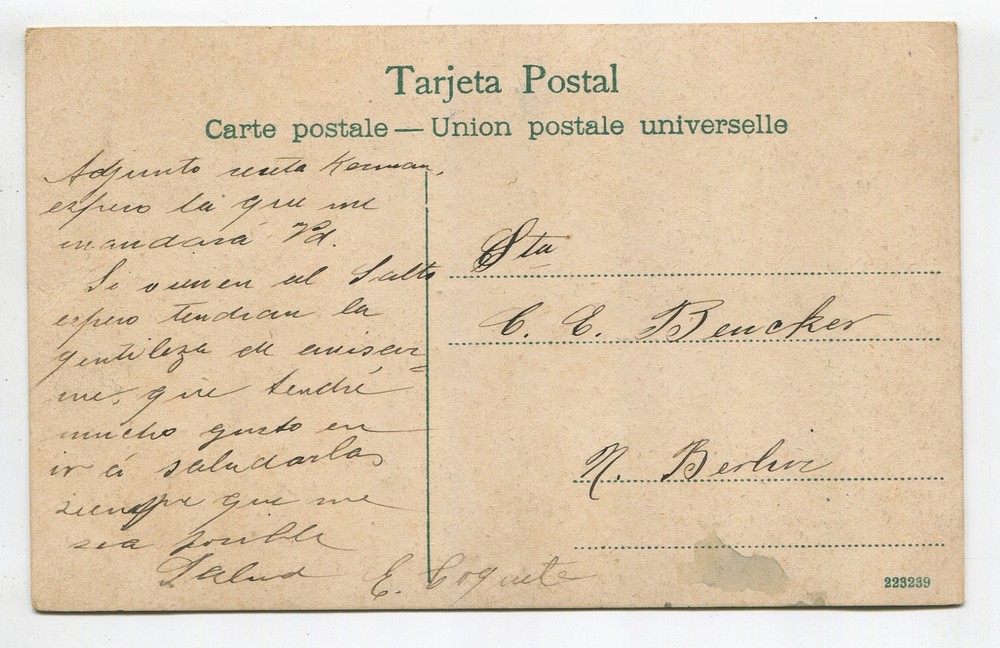 Tarjeta Postal
Carte postale — Union postale universelle
Adjunto
espero la que me
mandará Vd.
Si vienen al Salto
espero tendran la
gentileza de avisar-
me, que tendré
mucho gusto en
ir á saludarlas
siempre que me
sea posible
Salud
E. Coquete
Sta
C. E. Beucker
N. Berlin
223239